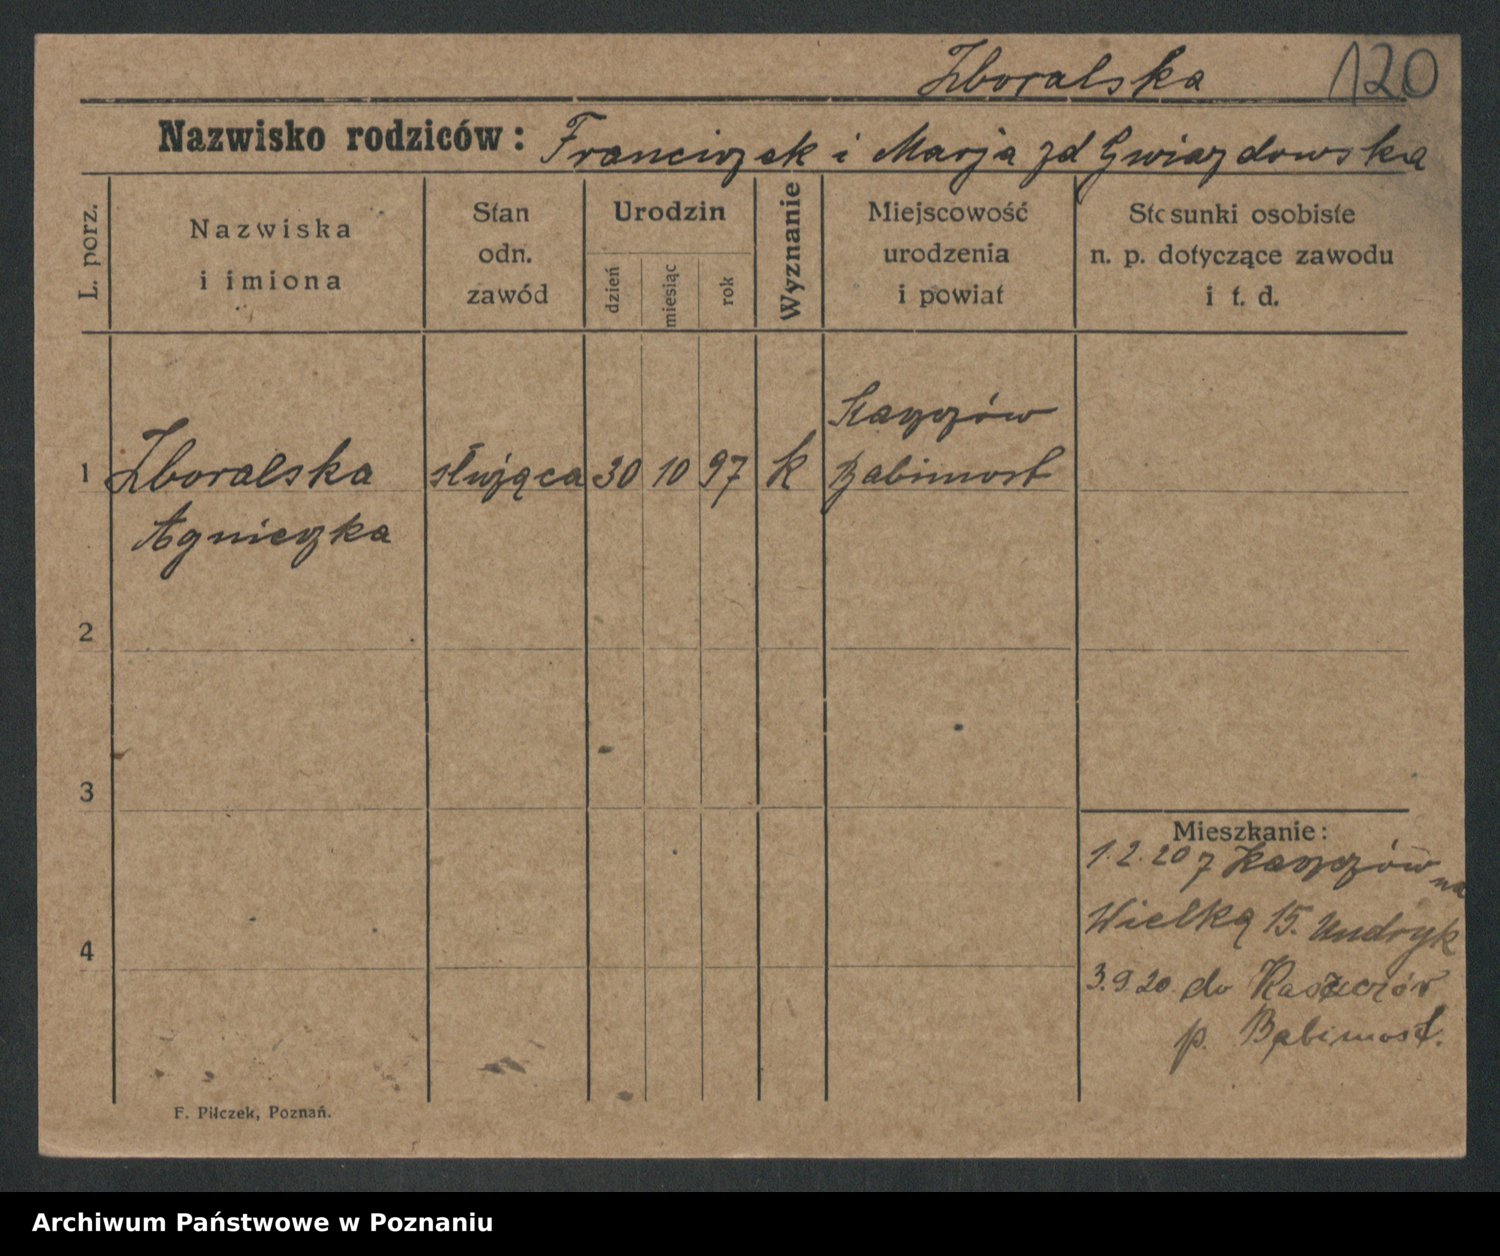 Zboralska 120
Nazwisko rodziców: Franciszek i Marja zd Gwiazdowska
L. porz.
Nazwiska
i imiona
Stan
odn.
zawód
Urodzin
dzień
miesiąc
rok
Wyznanie
Miejscowość
urodzenia
i powiat
Stosunki osobiste
n. p. dotyczące zawodu
i t. d.
Kaszczów
1 Zboralska służąca 30 10 97 k Babimost
Agnieszka
2
3
4
Mieszkanie:
1.2.20 z Kaszczów na
Wielką 15.
3.9.20. do Kaszczór
p. Babimost.
F. Pilczek, Poznań.
Archiwum Państwowe w Poznaniu